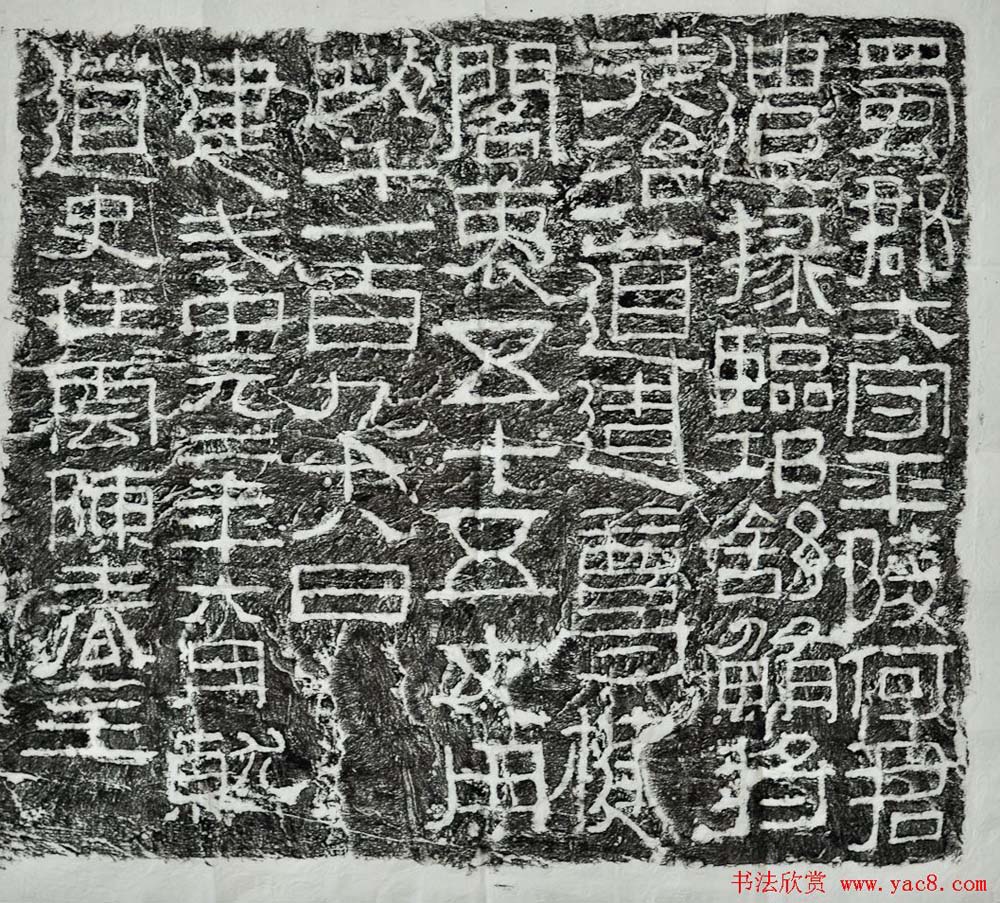 蜀郡大守平陵何君
遣掾臨邛舒鮪將
徒治道造尊楗
閣袤五十五丈用
功千一百九十八日
建武中元二年六月就
道史任雲陳春主
书法欣赏 www.yac8.com